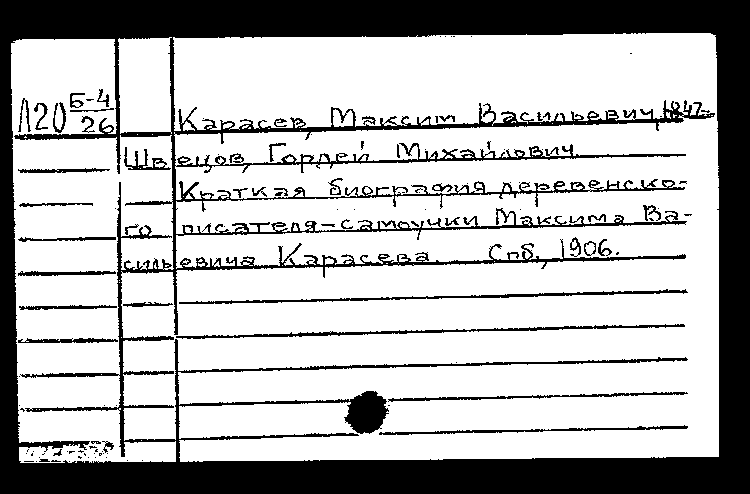 Л20 Б-4/26 Карасев, Максим Васильевич, 1847-
Швецов, Гордей Михайлович
Краткая биография деревенско-
го писателя-самоучки Максима Ва-
сильевича Карасева. Спб., 1906.